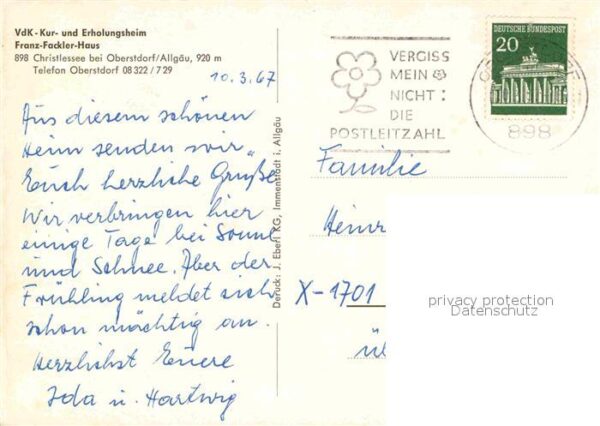 VdK-Kur- und Erholungsheim
Franz-Fackler-Haus
898 Christlessee bei Oberstdorf/Allgäu, 920 m
Telefon Oberstdorf 08 322 / 7 29
10.3.67
Aus diesem schönen
Heim senden wir
Euch herzliche Grüße
Wir verbringen hier
einige Tage bei Sonne
und Schnee. Aber der
Frühling meldet sich
schon mächtig an.
Herzlichst Euere
Ida u. Hartwig
Deruck: J. Eberl KG, Immenstadt i. Allgäu
VERGISS
MEIN
NICHT:
DIE
POSTLEITZAHL
DEUTSCHE BUNDESPOST
20
898
Familie
Heinr
X-1701
privacy protection
Datenschutz